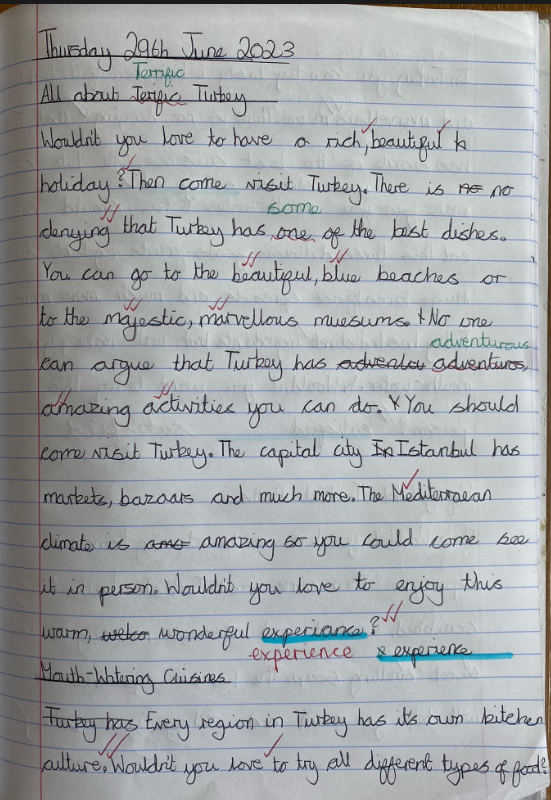 Thursday 29th June 2023
Terrific
All about Terific Turkey
Wouldn't you love to have a rich, beautiful
holiday? Then come visit Turkey. There is no no
some
denying that Turkey has one of the best dishes.
You can go to the beautiful, blue beaches or
to the majestic, marvellous muesums. No one
adventurous
can argue that Turkey has adventur adventuros,
amazing activities you can do. You should
come visit Turkey. The capital city In Istanbul has
markets, bazaars and much more. The Mediterraean
climate is ama amazing so you could come see
it in person. Wouldn't you love to enjoy this
warm, welco wonderful experiance?
experience x experience
Mouth-Watering Cuisines
Turkey has Every region in Turkey has its own kitchen
culture. Wouldn't you love to try all different types of food?